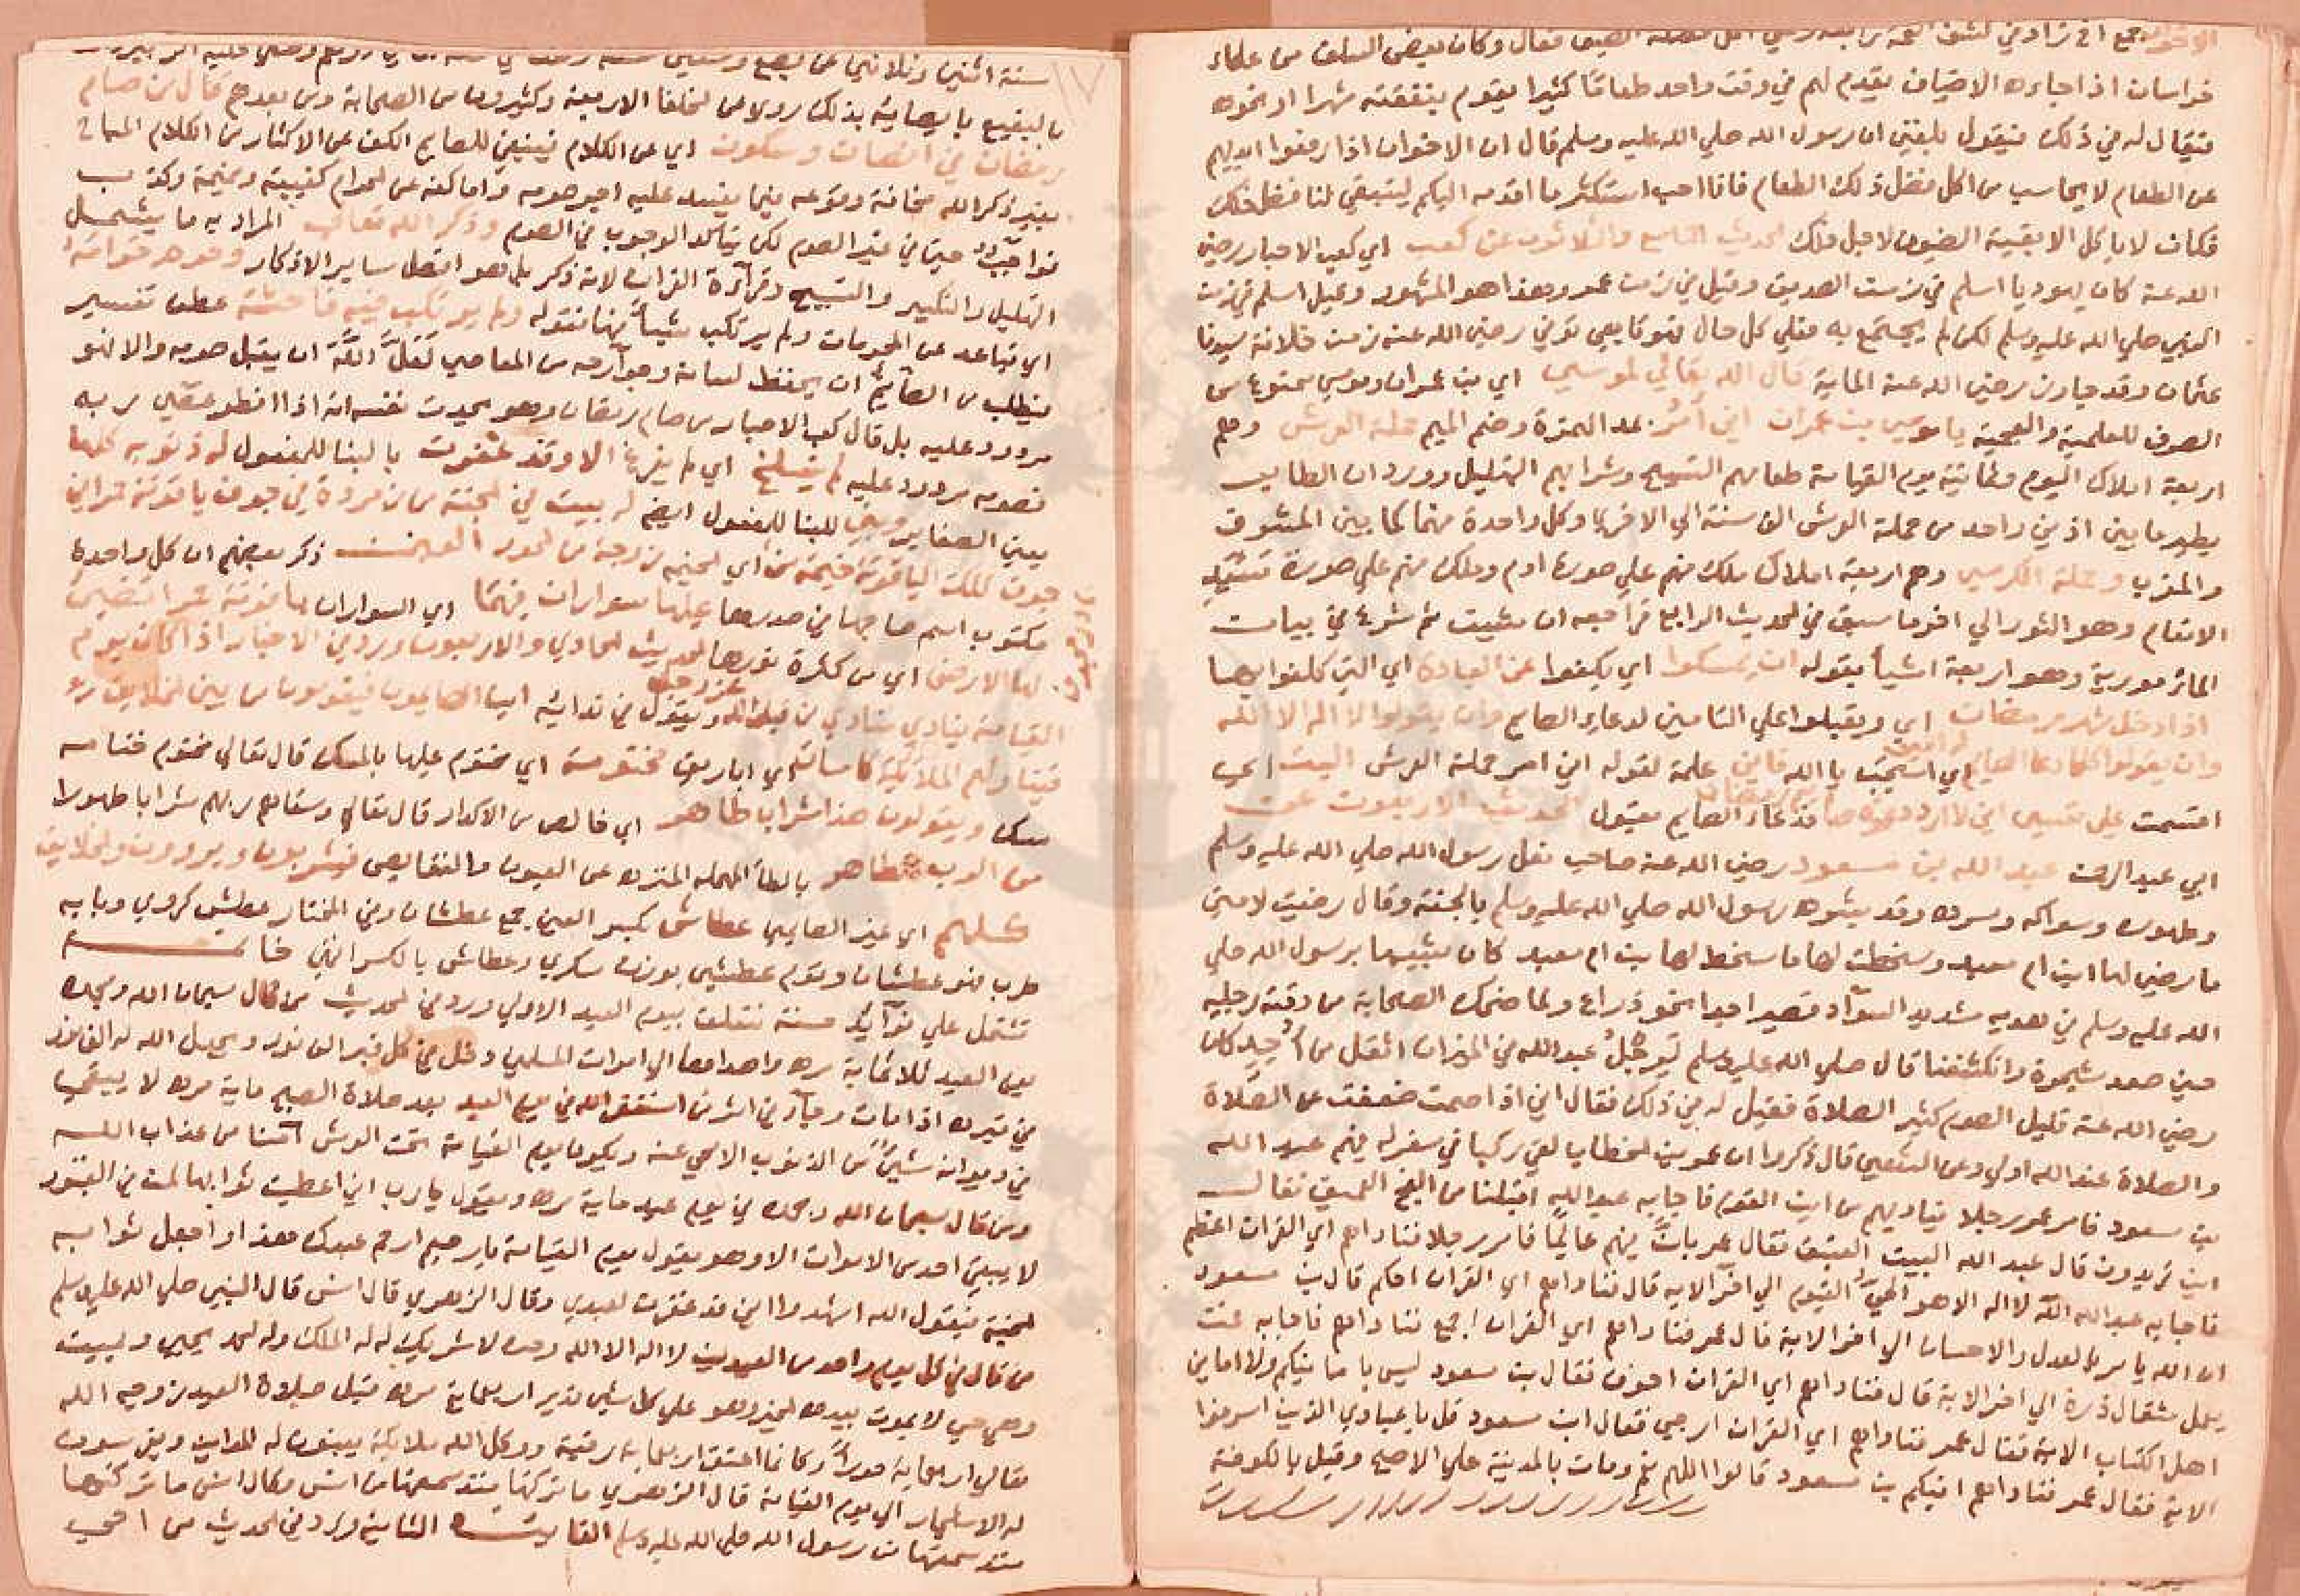 خراسان اذا جاءه الاضياف يقدم لهم في وقت واحد طعاما كثيرا يقوم بنفقته شهرا او نحوه
فيقال له في ذلك فيقول بلغني ان رسول الله صلي الله عليه وسلم قال ان الاخوان اذا رفعوا ايديهم
عن الطعام لا يحاسب من اكل فضل ذلك الطعام فانا احب استكثر ما اقدمه اليكم ليتبقي لنا فضل ذلك
فكان لا ياكل الا بقية الضيوف لاجل ذلك الحديث التاسع والثلاثون عن كعب اي كعب الاحبار رضي
الله عنه كان يهوديا اسلم في زمن الصديق وقيل في زمن عمر وهذا هو المشهور وقيل اسلم في زمن
النبي صلي الله عليه وسلم لكن لم يجتمع به فعلي كل حال فهو تابعي توفي رضي الله عنه زمن خلافة سيدنا
عثمان وقد جاوز رضي الله عنه الماية قال الله تعالي لموسي اي بن عمران وموسي ممنوع من
الصرف للعلمية والعجمية يا موسي بن عمران اني آمر بمد الهمزة وضم الميم حملة العرش وهم
اربعة املاك اليوم وثمانية يوم القيامة طعامهم التسبيح وشرابهم التهليل وورد ان الطاير
يطير ما بين اذني واحد من حملة العرش الف سنة الي الاخري وكل واحدة منهما كما بين المشرق
والمغرب وحملة الكرسي وهم اربعة املاك ملك منهم علي صورة ادم وملك منهم علي صورة سيد
الانعام وهو الثور الي اخر ما سبق في الحديث الرابع فراجعه ان شئيت ثم شرع في بيان
المائر مورية وهو اربعة اشيا بقوله ان يمسكوا اي يكفوا عن العبادة اي التي كلفوا بها
اذا دخل شهر رمضان اي ويقبلوا علي التامين لدعاء الصايم وان يقولوا لا اله الا الله
وان يقولوا كلما دعا الصايم امين اي استجب يا الله فاني علة لقوله اني امر حملة العرش اليت اي
اقسمت علي نفسي اني لا ارد دعوة صايم رمضان فدعاء الصايم مقبول الحديث الاربعون عن
ابي عبد الرحمن عبد الله بن مسعود رضي الله عنه صاحب نعل رسول الله صلي الله عليه وسلم
وطهوره وسواكه وسره وقد بشره رسول الله صلي الله عليه وسلم بالجنة وقال رضيت لامتي
ما رضي لها ابن ام معبد وسخطت لها ما سخط لها بن ام معبد كان شبيها برسول الله صلي
الله عليه وسلم في هديه شديد السواد قصيرا جدا نحو ذراع ولما ضحك الصحابة من دقة رجليه
حين صعد شجرة وانكشفنا قال صلي الله عليه وسلم لرجل عبد الله في الميزان اثقل من احد كان
رضي الله عنه قليل الصوم كثير الصلاة فقيل له في ذلك فقال اني اذا صمت ضعفت عن الصلاة
والصلاة عند الله اولي وعن الشعبي قال ذكروا ان عمر بن الخطاب لقي ركبا في سفر له فيهم عبد الله
بن مسعود فامر عمر رجلا يناديهم من اين القوم فاجابه عبد الله اقبلنا من الفج العميق فقال
اين تريدون قال عبد الله البيت العتيق فقال عمر بان فيهم عالما فامر رجلا فناداهم اي القران اعظم
فاجابه عبد الله الله لا اله الا هو الحي القيوم الي اخر الاية قال فناداهم اي القران احكم قال بن مسعود
ان الله يامر بالعدل والاحسان الي اخر الاية قال عمر فناداهم اي القران اجمع فناداهم فاجابه عنه
يعمل مثقال ذرة الي اخر الاية قال فناداهم اي القران اخوف فقال بن مسعود ليس بامانيكم ولا اماني
اهل الكتاب الاية فقال عمر فناداهم اي القران ارجي فقال ابن مسعود قل يا عبادي الذين اسرفوا
الاية فقال عمر فناداهم افيكم بن مسعود قالوا اللهم نعم ومات بالمدينة علي الاصح وقيل بالكوفة
بالبقيع بايصايه بذلك روي عن الخلفا الاربعة وكثيرون من الصحابة ومن بعدهم قال من صام
رمضان في انصات وسكون اي عن الكلام فينبغي للصايم الكف عن الاكثار من الكلام المباح
بغير ذكر الله مخافة وقوعه فيما يفسد عليه اجر صومه واما كفه عن الحرام كغيبة ونميمة وكذب
فواجب حتي في غير الصوم لكن يتاكد الوجوب في الصوم وذكر الله تعالي المراد به ما يشمل
التهليل والتكبير والتسبيح وقرآءة القران لانه ذكر بل هو افضل ساير الاذكار
اي تباعد عن المحرمات ولم يرتكب شيأ منها فقوله ولم يرتكب فيه فاحشة عطف تفسير
فيطلب من الصآيم ان يحفظ لسانه وجوآرحه من المعاصي لَعَلَّ اللَّهَ ان يقبل صومه والا فهو
مردود عليه بل قال كعب الاحبار من صام رمضان وهو يحدث نفسه انه اذا افطر عصي ربه
فصومه مردود عليه لم ينسلخ اي لم يفرغ الا وقد غفرت بالبنا للمفعول له ذنوبه كلها
يعني الصغاير وبني للبنا للمفعول ايضا له بيت في الجنة من زمردة في جوف ياقوتة حمرا في
جوف تلك الياقوتة خيمة من اي الخيمة زوجة من الحور العين ذكر بعضهم ان كل واحدة
مكتوب اسم صاحبها في صدرها عليها سواران فيهما اي السواران ياقوتة خضرا تضيئ
لها الارض اي من كثرة نورها الحديث الحادي والاربعون وروي في الاخبار اذا كان يوم
القيامة ينادي منادي من قبل الله عز وجل ويقول في ندائه اين الصايمون فيقومون من بين الخلايق
فيناولهم الملايكة كاسات اي اباريق مختومة اي مختوم عليها بالمسك قال تعالي مختوم ختامه
مسك ويقولون هذا شرابا طاهر اي خالص من الاكدار قال تعالي وسقاهم ربهم شرابا طهورا
من الرب طاهر بالطأ المهملة المنزه عن العيوب والنقايص فيشربون ويروون والخلايق
كلهم اي غير الصايمين عطاش بكسر العين جمع عطشان وفي المختار عطش كروي وبابه
طرب فهو عطشان وقوم عطشي بوزن سكري وعطاش بالكسر انتهي خاتمة
تشتمل علي فوآيد حسنة تتعلق بيوم العيد الاولي ورد في الحديث من قال سبحان الله وبحمده
يوم العيد ثلاثماية مره واهداها الي اموات المسلمين دخل في كل قبر الف نور ويجعل الله له الف نور
في قبره اذا مات وجآء في اثر من استغفر الله في يوم العيد بعد صلاة الصبح ماية مره لا يبقي
في ديوانه شيئ من الذنوب الا محي عنه ويكون يوم القيامة تحت العرش آمنا من عذاب الله
ومن قال سبحان الله وبحمده في يوم عيد ماية مره ويقول يا رب اني اعطيت ثوابها لمن في القبور
لا يبقي احد من الاموات الا وهو يقول يوم القيامة يا رحيم ارحم عبدك هذا واجعل ثوابه
الجنة فيقول الله اشهدوا اني قد غفرت لعبدي وقال الزهري قال انس قال النبي صلي الله عليه وسلم
من قال في كل يوم واحد من العيدين لا اله الا الله وحده لا شريك له له الملك وله الحمد يحيي ويميت
وهو حي لا يموت بيده الخير وهو علي كل شي قدير اربعماية مره قبل صلاة العيد زوجه الله
تعالي اربعماية حورآ وكانما اعتق اربعماية رقبة ووكل الله ملايكة يبنون له المداين ويغرسون
له الاشجار الي يوم القيامة قال الزهري ما تركتها منذ سمعتها من انس وقال انس ما تركتها
منذ سمعتها من رسول الله صلي الله عليه وسلم الفايدة الثانية ورد في الحديث من احيي